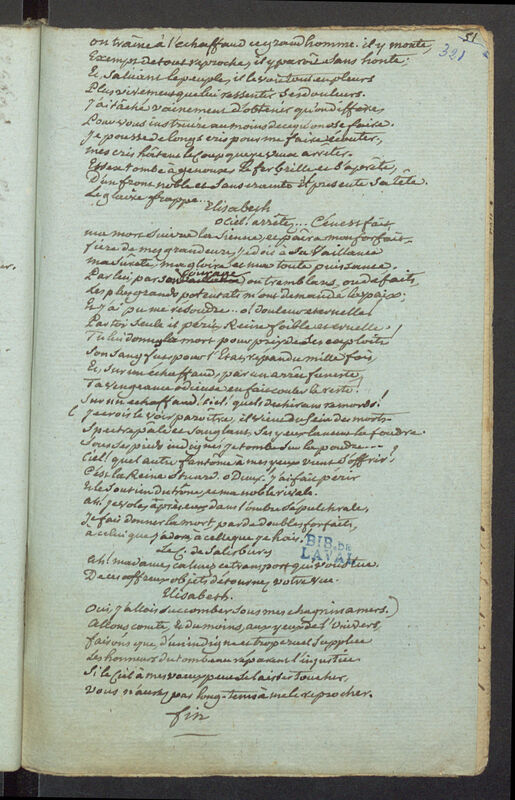 51
321
on traîne à l'echaffaud ce grand homme. il y monte,
Exempt de tout reproche, il y paroît sans honte;
Et saluant le peuple, il le voit tout en pleurs
Plus vivement que lui ressentir ses douleurs.
J'ai tâché vainement d'obtenir qu'on differe,
Pour vous instruire au moins de ce qu'on ose faire.
Je pousse de longs cris pour me faire écouter,
mes cris hâtent le coup que je veux arrêter.
Essex tombe à genoux; le fer brille et s'apprête,
D'un front noble et sans crainte il presente sa tête.
Le glaive frappe...
Elisabeth
o ciel! arrête... C'en est fait
ma mort suivra la sienne, et paîra mon forfait.
fiere de mes grandeurs, je dois à sa vaillance
ma sûreté, ma gloire, et ma toute puissance.
Par lui, par son courage ou tremblans, ou defaits
Les plus grands potentats m'ont demandé la paix;
Et j'ai pu me resoudre.. o! douleur eternelle!
Par toi seule il périt, Reine foible et cruelle!
Tu lui donnes la mort pour prix de ses exploits
Son sang fut pour l'Etat repandu mille fois
Et sur un echaffaud, par un arrêt funeste,
Ta vengeance odieuse en fait couler le reste!
Sur un echaffaud! ciel! quels dechirans remords!
Je crois le voir paroître, il vient du sein des morts
Spectre pâle et sanglant, ses yeux lancent la foudre.
Sous ses pieds indignés je tombe sur la poudre...
Ciel! quel autre fantome à mes yeux vient s'offrir!
C'est la Reine Stuard. o Dieux! j'ai fait perir
Et le soutien du trone, et ma noble rivale.
ah! je vois, après eux dans l'ombre sépulchrale,
Je fais donner la mort par de doubles forfaits,
a celui que j'adore, a celle que je hais.
Le C. de Salisbury
BIB. DE LAVAL
Ah! madame, calmez ce transport qui vous tue.
De ces affreux objets détournez votre vue.
Elisabeth.
Oui, j'allois succomber sous mes chagrins amers.
Allons comte, et du moins, aux yeux de l'univers
faisons que d'un indigne et trop cruel supplice
Les honneurs du tombeau réparent l'injustice
Si le Ciel à mes vœux peut se laisser toucher,
vous n'aurez pas long-tems à me le reprocher.
fin